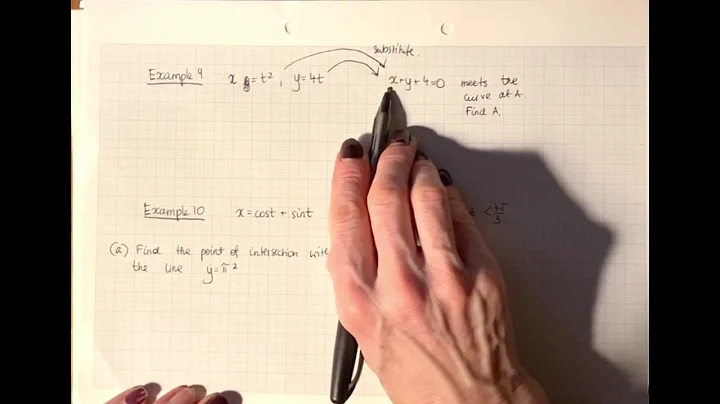 substitute.
Example 9 x = t², y = 4t x + y + 4 = 0 meets the
curve at A.
Find A.
Example 10 x = cost + sint t < 4π/3
(a) Find the point of intersection with
the line y = π²